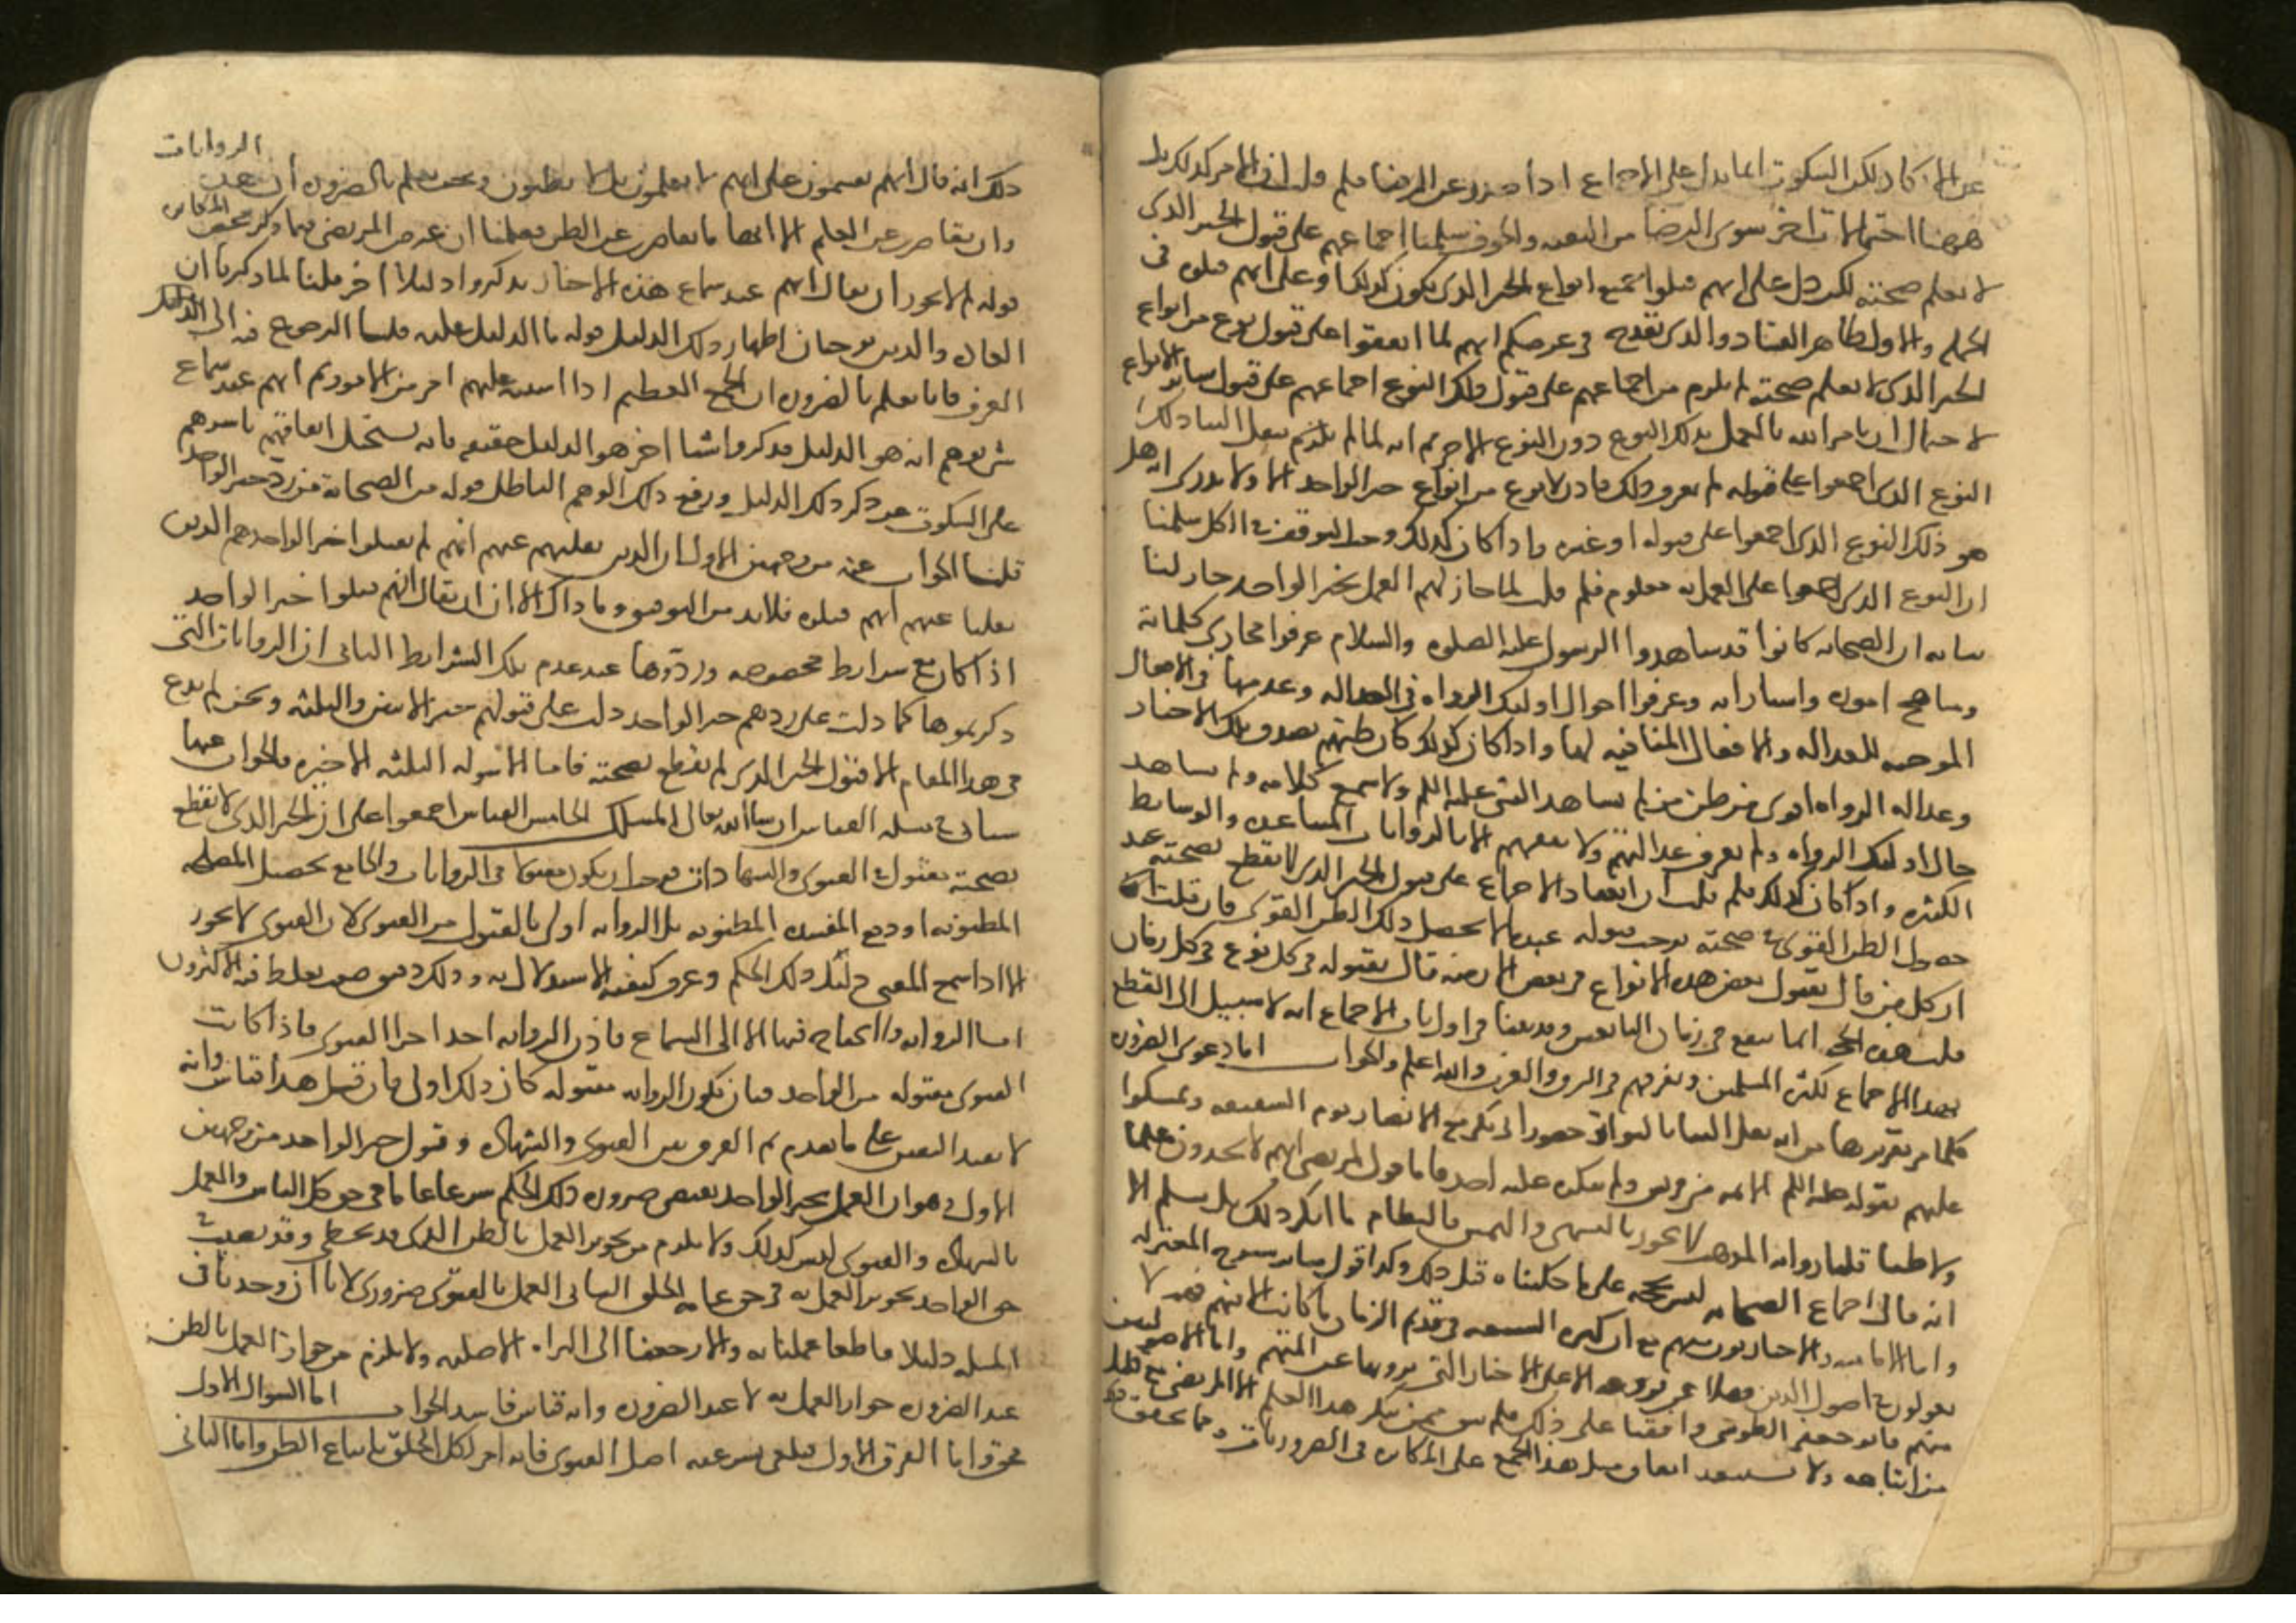 عن الانكار لكن السكوت انما يدل على الاجماع اذا صدر عن الرضا فلم قلت ان الامر كذلك بل
ههنا احتمالات اخر سوى الرضا من التقية والخوف سلمنا اجماعهم على قبول الخبر الذي
لا يعلم صحته لكن دل على انهم قبلوا جميع انواع الخبر الذي يكون كذلك او على انهم قبلوه في
الجملة والاول ظاهر الفساد والذي يقدح في غرضكم انهم لما اتفقوا على قبول نوع من انواع
الخبر الذي لا يعلم صحته لم يلزم من اجماعهم على قبول ذلك النوع اجماعهم على قبول سائر الانواع
لاحتمال ان يامر الله بالعمل بذلك النوع دون النوع الاخر ثم انه لما لم يلزم ينقل الينا ذلك
النوع الذي اجمعوا على قبوله لم يعرف ذلك فاذن لا نوع من انواع خبر الواحد الا ولا يدرى انه هل
هو ذلك النوع الذي اجمعوا على قبوله او غيره واذا كان كذلك وجب التوقف في الكل سلمنا
ان النوع الذي اجمعوا على العمل به معلوم فلم قلت لما جاز لهم العمل بخبر الواحد جاز لنا
بيانه ان الصحابة كانوا قد شاهدوا الرسول عليه الصلوة والسلام عرفوا مجاري كلماته
ومناهج اموره واشاراته وعرفوا احوال اوليك الرواة في العدالة وعدمها في الافعال
الموجبة للعدالة والافعال المنافية لها واذا كان كذلك كان ظنهم بصدق تلك الاخبار
وعدالة الرواة اقوى من ظن من لم يشاهد النبي عليه السلم ولا سمع كلامه ولم يشاهد
حال اوليك الرواة ولم يعرف عدالتهم ولا فسقهم الا بالروايات المتباعدة والوسايط
الكثيرة واذا كان كذلك فلم قلت ان انعقاد الاجماع على قبول الخبر الذي لا يقطع بصحته عند
حصول الظن القوي في صحته يوجب قبوله عندما لا يحصل ذلك الظن القوي فان قلت
ان كل من قال بقبول بعض هذه الانواع في بعض الازمنة قال بقبوله في كل نوع في كل زمان
قلت هذه الحجة انما تنفع في زمان التابعين وقد بينا في اول باب الاجماع انه لا سبيل الى القطع
بهذا الاجماع لكثرة المسلمين وتفرقهم في الشرق والغرب والله اعلم والجواب اما دعوى الضرورة
فكما مر تقريرها من انه نقل الينا بالتواتر حضور ابي بكر مع الانصار يوم السقيفة وتمسكوا
عليهم بقوله عليه السلم الايمة من قريش ولم ينكره عليه احد فاما قول المرتضى انهم لا يجدون علما
ولا ظنا قلنا رواية المذهب لا يجوز بالتشهي والتمني فالنظام ما انكر ذلك بل يسلم الا
انه قال اجماع الصحابة ليس بحجة على ما حكيناه قبل ذلك وكذا قول سائر شيوخ المعتزلة
واما الامامية والاخباريون منهم مع ان كثرة الشيعة في قديم الزمان ما كانت الا منهم فهم لا
يعولون في اصول الدين فضلا عن فروعه الا على الاخبار التي يروونها عن ائمتهم واما الاصوليون
منهم فابو جعفر الطوسي وافقنا على ذلك فلم يبق ممن ينكر هذا العلم الا المرتضى مع قليل
من اتباعه ولا يستبعد اتفاق مثل هذا الجمع على المكابرة في الضروريات ومما يحقق
ذلك انه قال انهم يقسمون على انهم لا يعلمون بل لا يظنون ونحن نعلم بالضرورة ان هذه الروايات
وان تقاصرت عن العلم الا انها ما تقاصرت عن الظن فعلمنا ان غرض المرتضى فيما ذكر محض المكابرة
قوله لم لا يجوز ان يقال انهم عند سماع هذه الاخبار تذكروا دليلا اخر قلنا لما ذكرنا ان
العادة والدين يوجبان اظهار ذلك الدليل قوله ما الدليل عليه قلنا الرجوع فيه الى
العرف فانا نعلم بالضرورة ان الجمع العظيم اذا اشتبه عليهم امر من الامور ثم انهم عند سماع
شي يوهم انه هو الدليل فذكروا شيا اخر هو الدليل حقيقة فانه يستحيل اتفاقهم باسرهم
على السكوت عن ذكر ذلك الدليل ورفع ذلك الوهم الباطل قوله من الصحابة من رد خبر الواحد
قلنا الجواب عنه من وجهين الاول ان الذين نقلتم عنهم انهم لم يقبلوا خبر الواحد هم الذين
نقلنا عنهم انهم قبلوه فلابد من التوفيق وما ذاك الا ان يقال انهم قبلوا خبر الواحد
اذا كان مع شرايط مخصوصة وردوها عند عدم تلك الشرايط الثاني ان الروايات التي
ذكرتموها كما دلت على ردهم خبر الواحد دلت على قبولهم خبر الاثنين والثلثة ونحن لم ندع
في هذا المقام الا قبول الخبر الذي لم يقطع بصحته فاما الاسولة الثلثة الاخيرة فالجواب عنها
سياتي في مسلة القياس ان شا الله تعالى المسلك الخامس القياس اجمعوا على ان الخبر الذي لا يقطع
بصحته مقبول في الفتوى والشهادات فوجب ان يكون مقبولا في الروايات والجامع تحصيل المصلحة
المظنونة او دفع المفسدة المظنونة بل الرواية اولى بالقبول من الفتوى لان الفتوى لا يجوز
الا اذا سمع المفتي دليل ذلك الحكم وعرف كيفية الاستدلال به وذلك دقيق صعب يغلط فيه الاكثرون
اما الرواية ولا يحتاج فيها الا الى السماع فاذن الرواية احد اجزا الفتوى فاذا كانت
الفتوى مقبولة من الواحد فبان تكون الرواية مقبولة كان ذلك اولى فان قيل هذا قياس وانه
لا يفيد اليقين على ما تقدم ثم الفرق بين الفتوى والشهادة وقبول خبر الواحد من وجهين
الاول هو ان العمل بخبر الواحد يقتضي صيرورة ذلك الحكم شرعا عاما في حق كل الناس والعمل
بالشهادة والفتوى ليس كذلك ولا يلزم من تجويز العمل بالظن الذي قد يخطي وقد يصيب في
حق الواحد تجويز العمل به في حق عامة الخلق الثاني العمل بالفتوى ضروري لانا ان وجدنا في
المسلة دليلا قاطعا عملنا به والا رجعنا الى البراءة الاصلية ولا يلزم من جواز العمل بالظن
عند الضرورة جواز العمل به لا عند الضرورة وانه قياس فاسد الجواب اما السوال الاول
فحق واما الفرق الاول فملغى بشرعية اصل الفتوى فانه امر لكل الخلق باتباع الظن واما الثاني